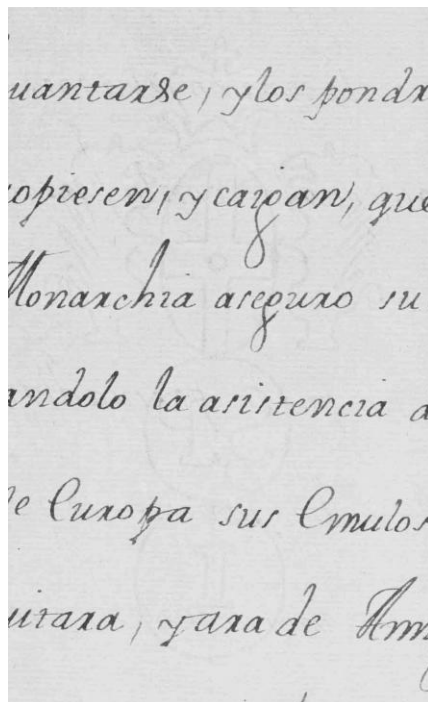 uantarse, y los pondr
opiesen, y caigan, que
Monarchia aseguro su
andolo la asistencia a
de Europa sus Emulos
uitara, y ara de Am